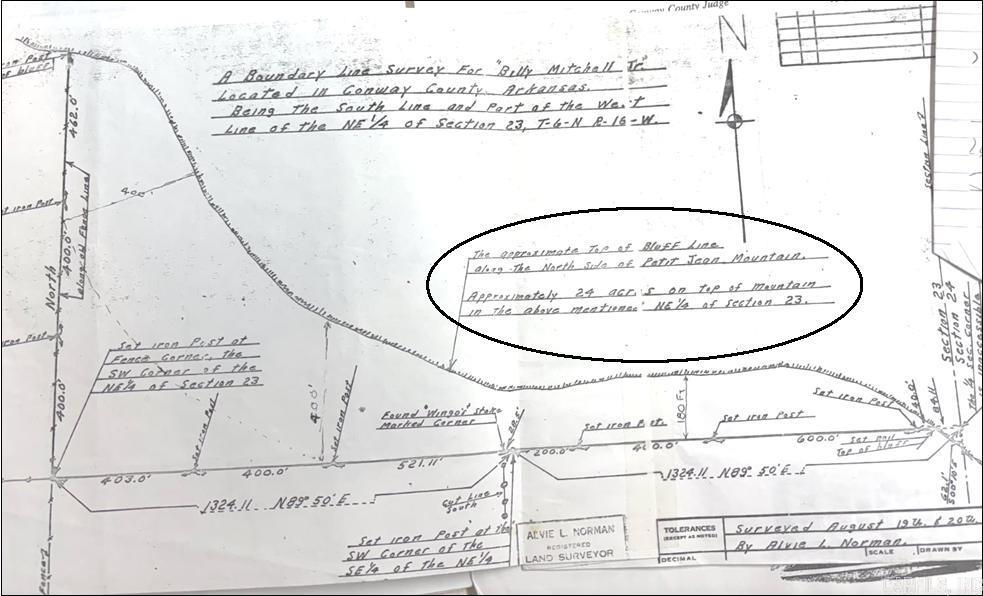 Conway County Judge
N
A Boundary Line Survey For "Billy Mitchell Jr"
Located in Conway County, Arkansas.
Being The South Line and Part of the West
Line of the NE 1/4 of Section 23, T-6-N R-16-W.
Iron Post
of bluff
462.0'
400'
set iron Post
400.0'
along old Fence Line
North
The approximate Top of Bluff Line
along The North Side of Petit Jean Mountain.
Approximately 24 acr s on top of mountain
in the above mentioned NE 1/4 of Section 23.
Iron Post
Set iron Post at
Fence Corner, the
SW Corner of the
NE 1/4 of Section 23.
400.0'
400'
Set iron Post
Set iron Post
Found "Wingo's" Stone
Marked Corner
180 Ft
Set iron Post
Set iron Post
Set iron Post
Section 23
Section 24
The 1/4 Sec. Corner
inaccessible
84.11
Set nail
Top of bluff
403.0'
400.0'
521.11'
200.0'
400.0'
600.0'
1324.11 N 89° 50' E
1324.11 N 89° 50' E
Cut Line
South
Set iron Post at the
SW Corner of the
SE 1/4 of The NE 1/4
Fence
ALVIE L. NORMAN
REGISTERED
LAND SURVEYOR
TOLERANCES
(EXCEPT AS NOTED)
DECIMAL
Surveyed August 19th, & 20th,
By Alvie L. Norman.
SCALE
DRAWN BY